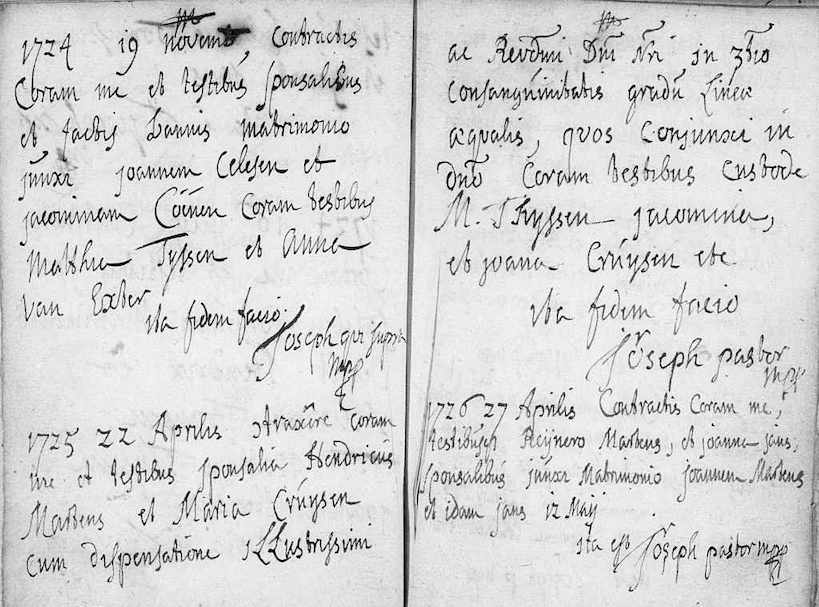 1724 19 novemb Contractis
Coram me et testibus sponsalibus
et factis bannis matrimonio
junxi joannem Celesen et
jacominam Coënen Coram testibus
Matthia Tyssen et Anna
Van Exter
ita fidem facio
Joseph qui supra
mpp
1725 22 Aprilis 9traxêre coram
me et testibus sponsalia Hendricus
Martens et Maria Crúysen
cum dispensatione illustrissimi
ac Revdmi Dni Nri in 3tio
consanguinitatis gradu Lineæ
æqualis, quos Conjunxi in
dno Coram testibus Custode
M. Thyssen jacomina,
et joana Crúysen etc
ita fidem facio
fr Joseph pastor
mpp
1726 27 Aprilis Contractis Coram me,
testibusq Reijnero Martens, et joanna jans,
sponsalibus junxi Matrimonio joannem Martens
et idam jans 12 Maij
ita est fr Joseph pastor mpp